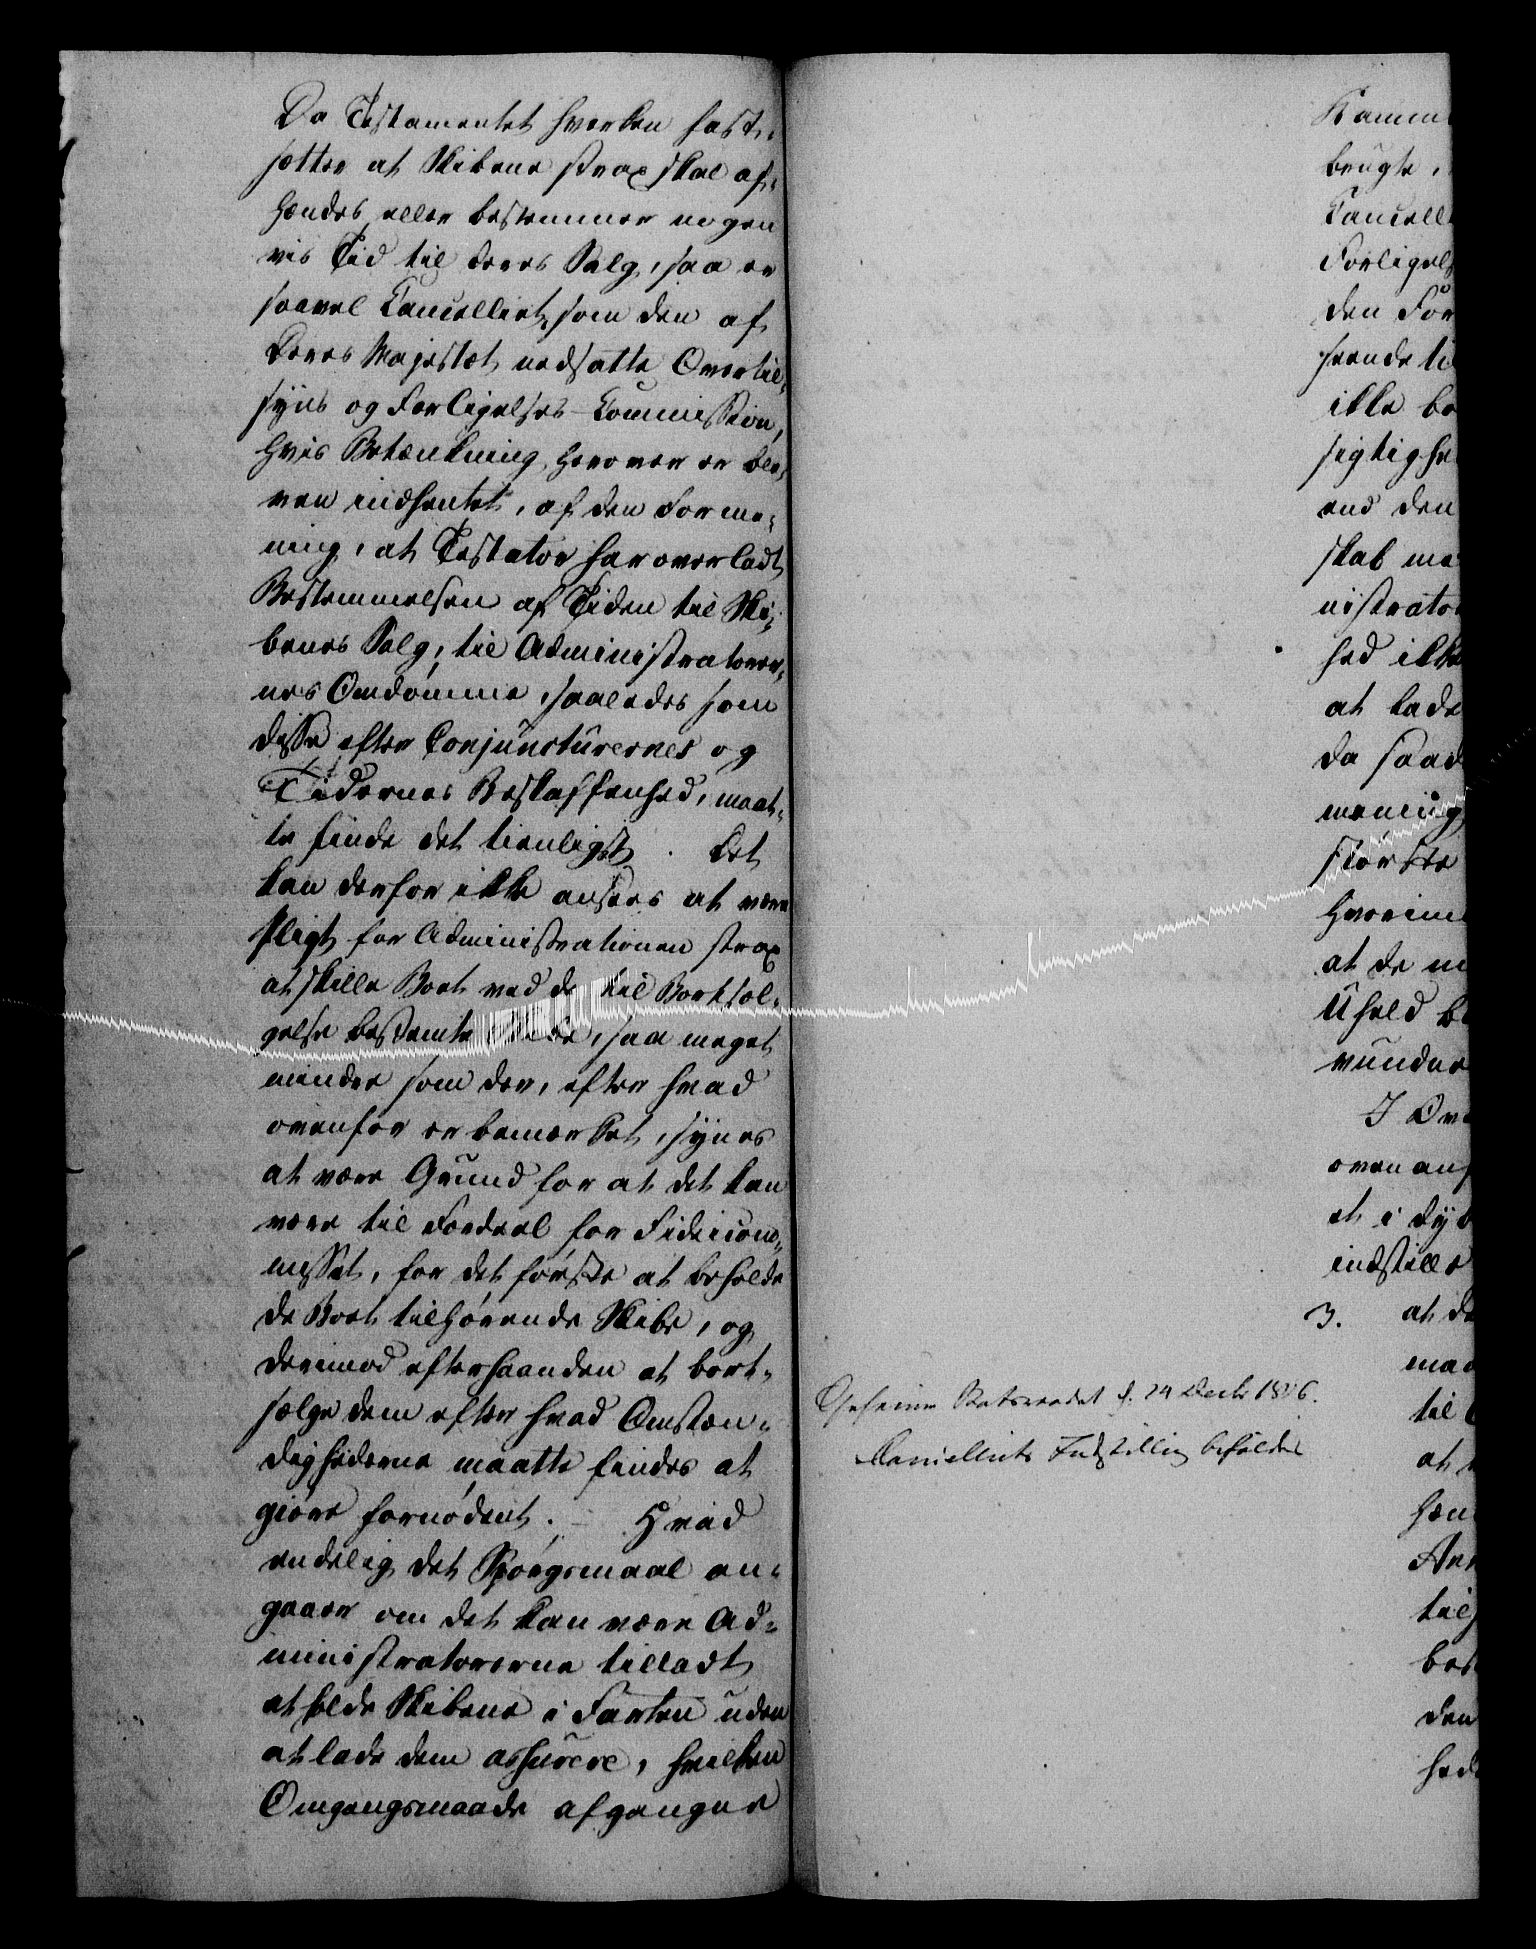 Da Testamentet hverken fast-
sætter at Skibene strax skal af-
hændes, eller bestemmer nogen
vis Tid til deres Salg, saa er
saavel Cancelliet, som den af
Deres Majestæt nedsatte Overtil-
syns og Forligelses-Commission,
hvis Betænkning herover er ble-
ven indhentet, af den Forme-
ning, at Testator har overladt
Bestemmelsen af Tiden til Ski-
benes Salg, til Administratorer-
nes Omdømme, saaledes som
disse efter Conjuncturernes og
Tidernes Beskaffenhed, maat-
te finde det tienligst. Det
kan derfor ikke ansees at være
Pligt for Administrationen strax
at skille Boet ved de til Bortsæl-
gelse bestemte, saa meget
mindre som der, efter hvad
ovenfor er bemærket, synes
at være Grund for at det kan
være til Fordeel for Fideicom-
misset, for det første at beholde
de Boet tilhørende Skibe, og
derimod efterhaanden at bort-
sælge dem efter hvad Omstæn-
dighederne maatte findes at
giøre fornødent. - Hvad
endelig det Spørgsmaal an-
gaaer om det kan være Ad-
ministratorerne tilladt
at holde Skibene i Farten uden
at lade dem assurere, hvilken
Omgangsmaade afgangne
Geheime Statsraadet d. 24 Decbr 1826.
Cancelliets Indstilling befalede
Kamm
brugte,
Cancelli
Forligels
den For
seende ti
ikke be
sigtighe
end den
skab me
nistrato
hed ikke
at lade
da saad
mening
største
hvorim
at de m
Uheld b
vundne
I Ove
ovenanf
et i dyb
indstille
3. at de
mad
til
at
hæn
An
til
bes
den
hed